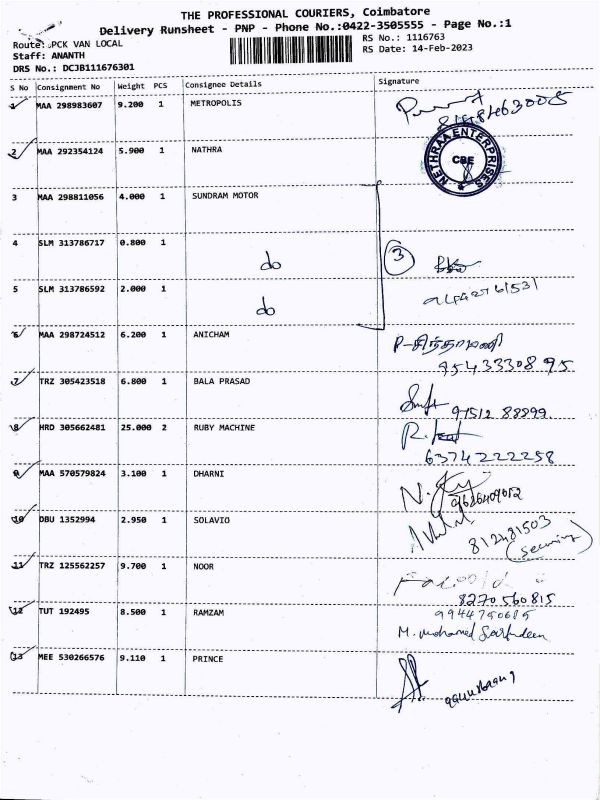 THE PROFESSIONAL COURIERS, Coimbatore
Delivery Runsheet - PNP - Phone No.:0422-3505555 - Page No.:1
Route: PCK VAN LOCAL
RS No.: 1116763
Staff: ANANTH
RS Date: 14-Feb-2023
DRS No.: DCJB111676301
S No Consignment No Weight PCS Consignee Details Signature
1 MAA 298983607 9.200 1 METROPOLIS
2 MAA 292354124 5.900 1 NATHRA
NETHRAA ENTERPRISES
CBE
3 MAA 298811056 4.000 1 SUNDRAM MOTOR
4 SLM 313786717 0.800 1 do
3
5 SLM 313786592 2.000 1 do
6 MAA 298724512 6.200 1 ANICHAM P-சிந்தாமணி
95433308 95
7 TRZ 305423518 6.800 1 BALA PRASAD
97512 88899
8 HRD 305662481 25.000 2 RUBY MACHINE
6374222258
9 MAA 570579824 3.100 1 DHARNI
9626409052
10 DBU 1352994 2.950 1 SOLAVIO
812481503
(Security)
11 TRZ 125562257 9.700 1 NOOR
8270560815
12 TUT 192495 8.500 1 RAMZAM
M. mohamed
13 MEE 530266576 9.110 1 PRINCE